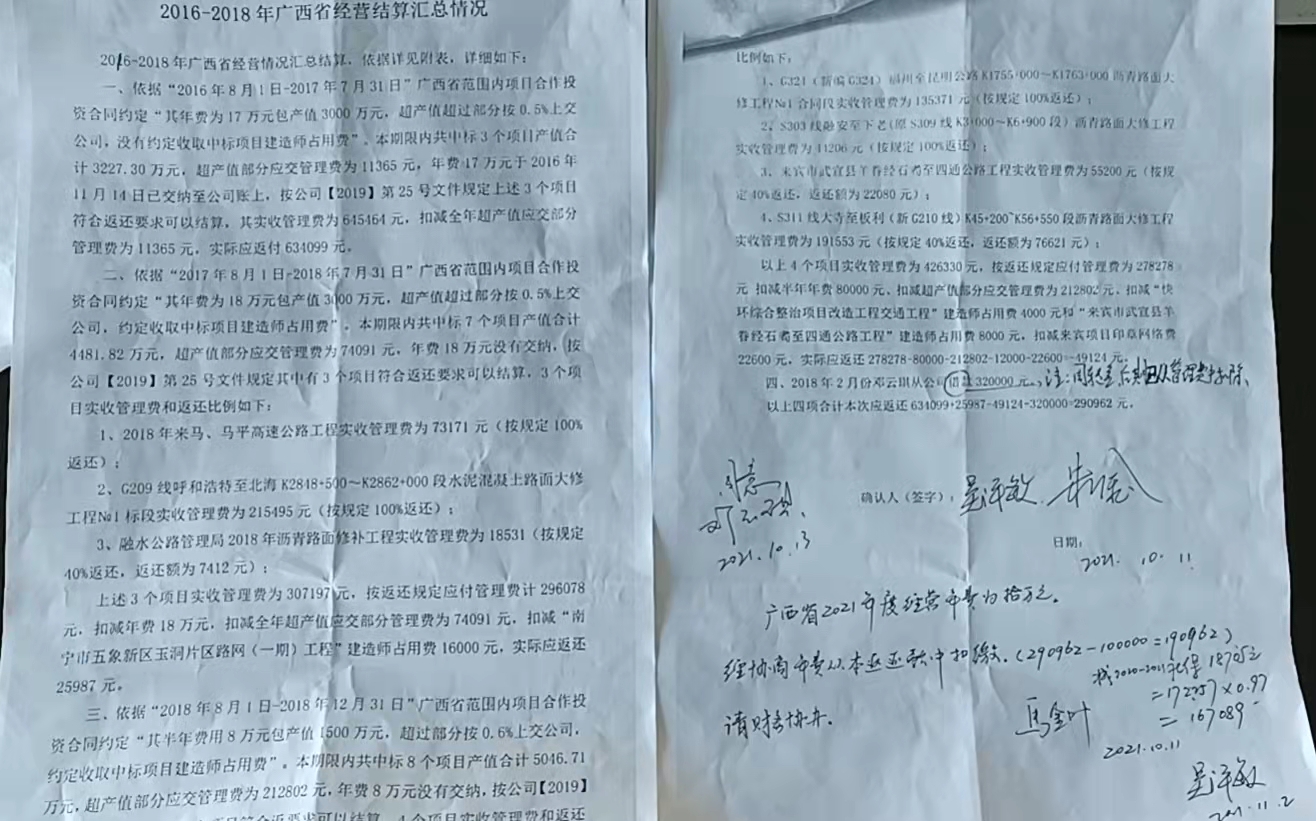 2016-2018年广西省经营结算汇总情况
2016-2018年广西省经营情况汇总结算，依据详见附表，详细如下：
一、依据“2016年8月1日-2017年7月31日”广西省范围内项目合作投
资合同约定“其年费为17万元包产值3000万元，超产值超过部分按0.5%上交
公司，没有约定收取中标项目建造师占用费”。本期限内共中标3个项目产值合
计3227.30万元，超产值部分应交管理费为11365元，年费17万元于2016年
11月14日已交纳至公司账上，按公司【2019】第25号文件规定上述3个项目
符合返还要求可以结算，其实收管理费为645464元，扣减全年超产值应交部分
管理费为11365元，实际应返付634099元。
二、依据“2017年8月1日-2018年7月31日”广西省范围内项目合作投
资合同约定“其年费为18万元包产值3000万元，超产值超过部分按0.5%上交
公司，约定收取中标项目建造师占用费”。本期限内共中标7个项目产值合计
4481.82万元，超产值部分应交管理费为74091元，年费18万元没有交纳，按
公司【2019】第25号文件规定其中有3个项目符合返还要求可以结算，3个项
目实收管理费和返还比例如下：
1、2018年来马、马平高速公路工程实收管理费为73171元（按规定100%
返还）；
2、G209线呼和浩特至北海K2848+500～K2862+000段水泥混凝土路面大修
工程№1标段实收管理费为215495元（按规定100%返还）；
3、融水公路管理局2018年沥青路面修补工程实收管理费为18531（按规定
40%返还，返还额为7412元）；
上述3个项目实收管理费为307197元，按返还规定应付管理费计296078
元，扣减年费18万元，扣减全年超产值应交部分管理费为74091元，扣减“南
宁市五象新区玉洞片区路网（一期）工程”建造师占用费16000元，实际应返还
25987元。
三、依据“2018年8月1日-2018年12月31日”广西省范围内项目合作投
资合同约定“其半年费用8万元包产值1500万元，超过部分按0.6%上交公司，
约定收取中标项目建造师占用费”。本期限内共中标8个项目产值合计5046.71
万元，超产值部分应交管理费为212802元，年费8万元没有交纳，按公司【2019】
可以结算，4个项目实收管理费和返还
比例如下：
1、G321（新编G324）福州至昆明公路K1755+000～K1763+000沥青路面大
修工程№1合同段实收管理费为135371元（按规定100%返还）；
2、S303线融安至下老（原S309线K3+000～K6+900段）沥青路面大修工程
实收管理费为44206元（按规定100%返还）；
3、来宾市武宣县羊眷经石崗至四通公路工程实收管理费为55200元（按规
定40%返还，返还额为22080元）；
4、S311线大寺至板利（新G210线）K45+200~K56+550段沥青路面大修工程
实收管理费为191553元（按规定40%返还，返还额为76621元）；
以上4个项目实收管理费为426330元，按返还规定应付管理费为278278
元 扣减半年年费80000元、扣减超产值部分应交管理费为212802元、扣减“快
环综合整治项目改造工程交通工程”建造师占用费4000元和“来宾市武宣县羊
眷经石崗至四通公路工程”建造师占用费8000元，扣减来宾项目印章网络费
22600元，实际应返还278278-80000-212802-12000-22600=-49124元。
四、2018年2月份邓云琪从公司借款320000元。注：
以上四项合计本次应返还634099+25987-49124-320000=290962元。
同意
邓云琪
2021.10.13
确认人（签字）：吴泽敏
日期：
2021. 10. 11
广西省2021年度经营年费为拾万元。
经协商年费从本返还款中扣缴。（290962-100000=190962）
减2020-2021社保18705元
=172257×0.97
=167089
请财务协办。
马金叶
2021.10.11
吴泽敏
2021.11.2